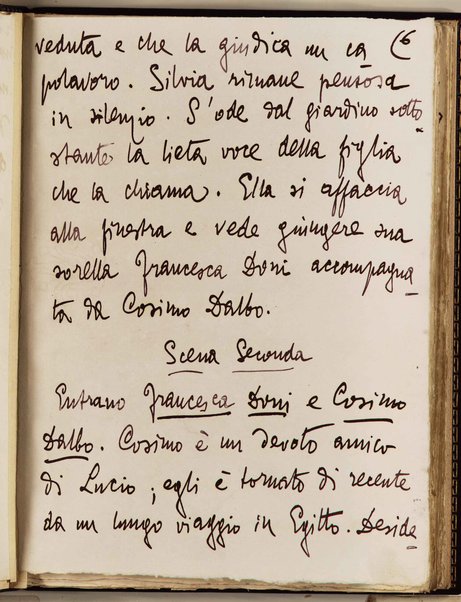 veduta e che la giudica un ca (6
polavoro. Silvia rimane pensosa
in silenzio. S'ode dal giardino sotto
stante la lieta voce della figlia
che la chiama. Ella si affaccia
alla finestra e vede giungere sua
sorella Francesca Doni accompagna_
ta da Cosimo Dalbo.
Scena Seconda
Entrano Francesca Doni e Cosimo
Dalbo. Cosimo è un devoto amico
di Lucio; egli è tornato di recente
da un lungo viaggio in Egitto. Deside_